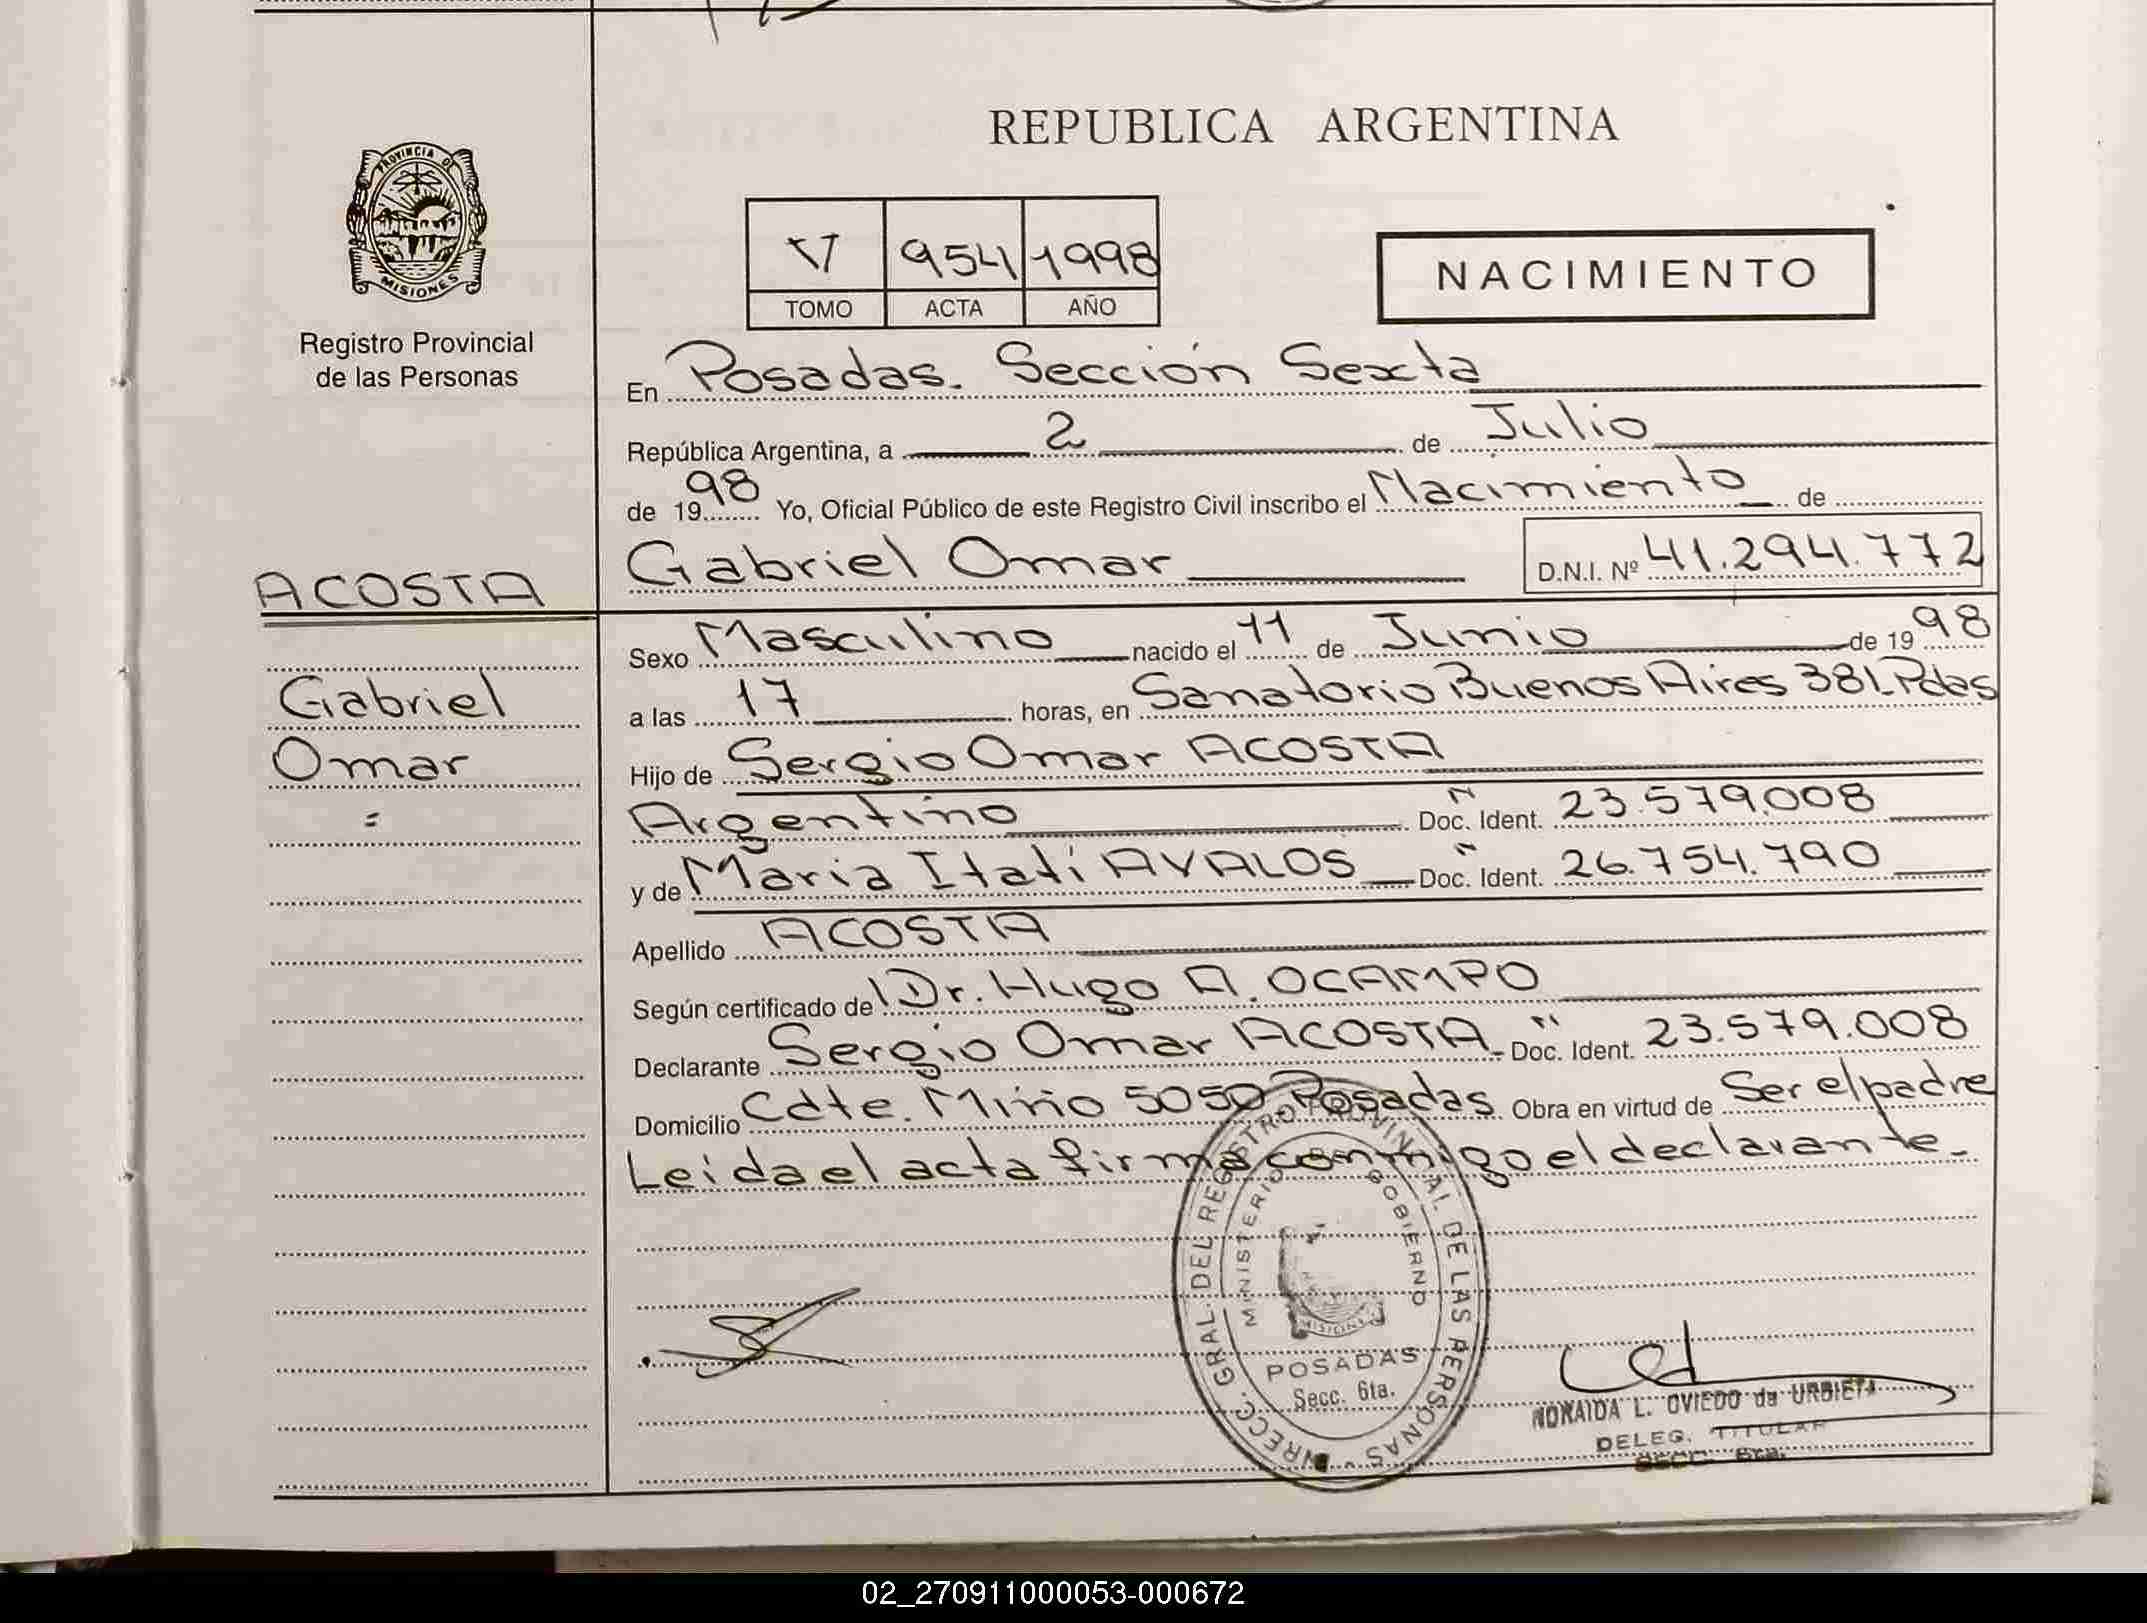 REPUBLICA ARGENTINA
PROVINCIA DE
MISIONES
Registro Provincial
de las Personas
V 954 1998
TOMO ACTA AÑO
NACIMIENTO
En Posadas. Sección Sexta
República Argentina, a 2 de Julio
de 1998 Yo, Oficial Público de este Registro Civil inscribo el Nacimiento de
Gabriel Omar D.N.I. Nº 41.294.772
ACOSTA
Gabriel
Omar
=
Sexo Masculino nacido el 11 de Junio de 1998
a las 17 horas, en Sanatorio Buenos Aires 381.Pdas
Hijo de Sergio Omar ACOSTA
Argentino Doc. Ident. 23.579.008
y de Maria Itatí AVALOS Doc. Ident. 26.754.790
Apellido ACOSTA
Según certificado de Dr. Hugo A. OCAMPO
Declarante Sergio Omar ACOSTA Doc. Ident. 23.579.008
Domicilio Cdte. Miño 5050 Posadas Obra en virtud de Ser el padre
Leida el acta firma conmigo el declarante.
DIRECC. GRAL. DEL REGISTRO PROVINCIAL DE LAS PERSONAS
MINISTERIO GOBIERNO
MISIONES
POSADAS
Secc. 6ta.
NORAIDA L. OVIEDO de URBIETA
DELEG. TITULAR
SECC. 6ta.
02_270911000053-000672